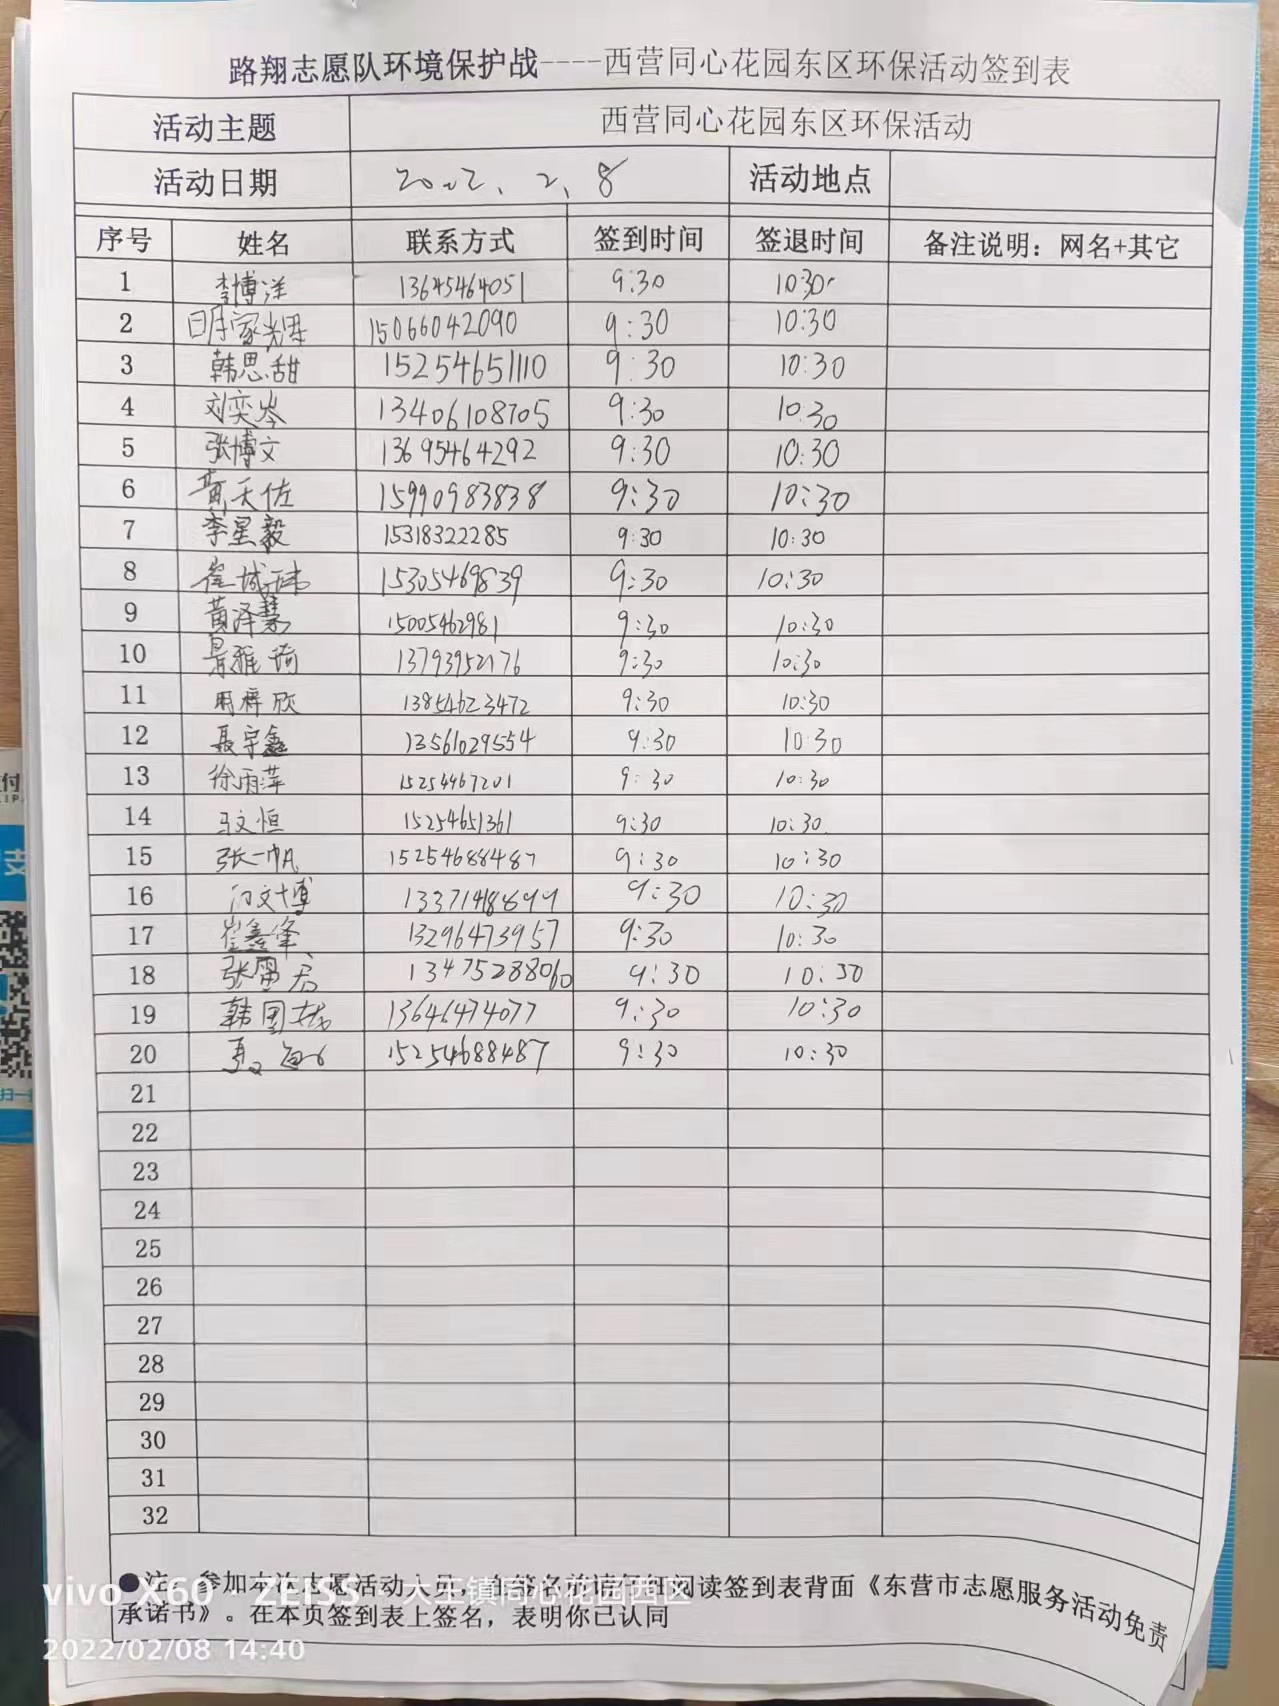 路翔志愿队环境保护战----西营同心花园东区环保活动签到表
活动主题 西营同心花园东区环保活动
活动日期 2022、2、8 活动地点
序号 姓名 联系方式 签到时间 签退时间 备注说明：网名+其它
1 李博洋 13645464051 9:30 10:30
2 明家辉 15066042090 9:30 10:30
3 韩思甜 15254651110 9:30 10:30
4 刘奕岑 13406108705 9:30 10:30
5 张博文 13695464292 9:30 10:30
6 黄天佐 15990983838 9:30 10:30
7 李星毅 15318322285 9:30 10:30
8 崔城玮 15305469839 9:30 10:30
9 黄泽慧 15005462981 9:30 10:30
10 景雅琦 13793952176 9:30 10:30
11 周梓欣 13854623472 9:30 10:30
12 聂宇鑫 13561029554 9:30 10:30
13 徐雨萍 15254467201 9:30 10:30
14 马文恒 15254651361 9:30 10:30
15 张一帆 15254688487 9:30 10:30
16 文博 9:30 10:30
17 崔鑫峰 13296473957 9:30 10:30
18 张雷君 13475288060 9:30 10:30
19 韩国栋 13646474077 9:30 10:30
20 15254688487 9:30 10:30
21
22
23
24
25
26
27
28
29
30
31
32
●注：参加本次志愿活动人员，在签名前请仔细阅读签到表背面《东营市志愿服务活动免责
承诺书》。在本页签到表上签名，表明你已认同
vivo X60 · ZEISS 大王镇同心花园西区
2022/02/08 14:40